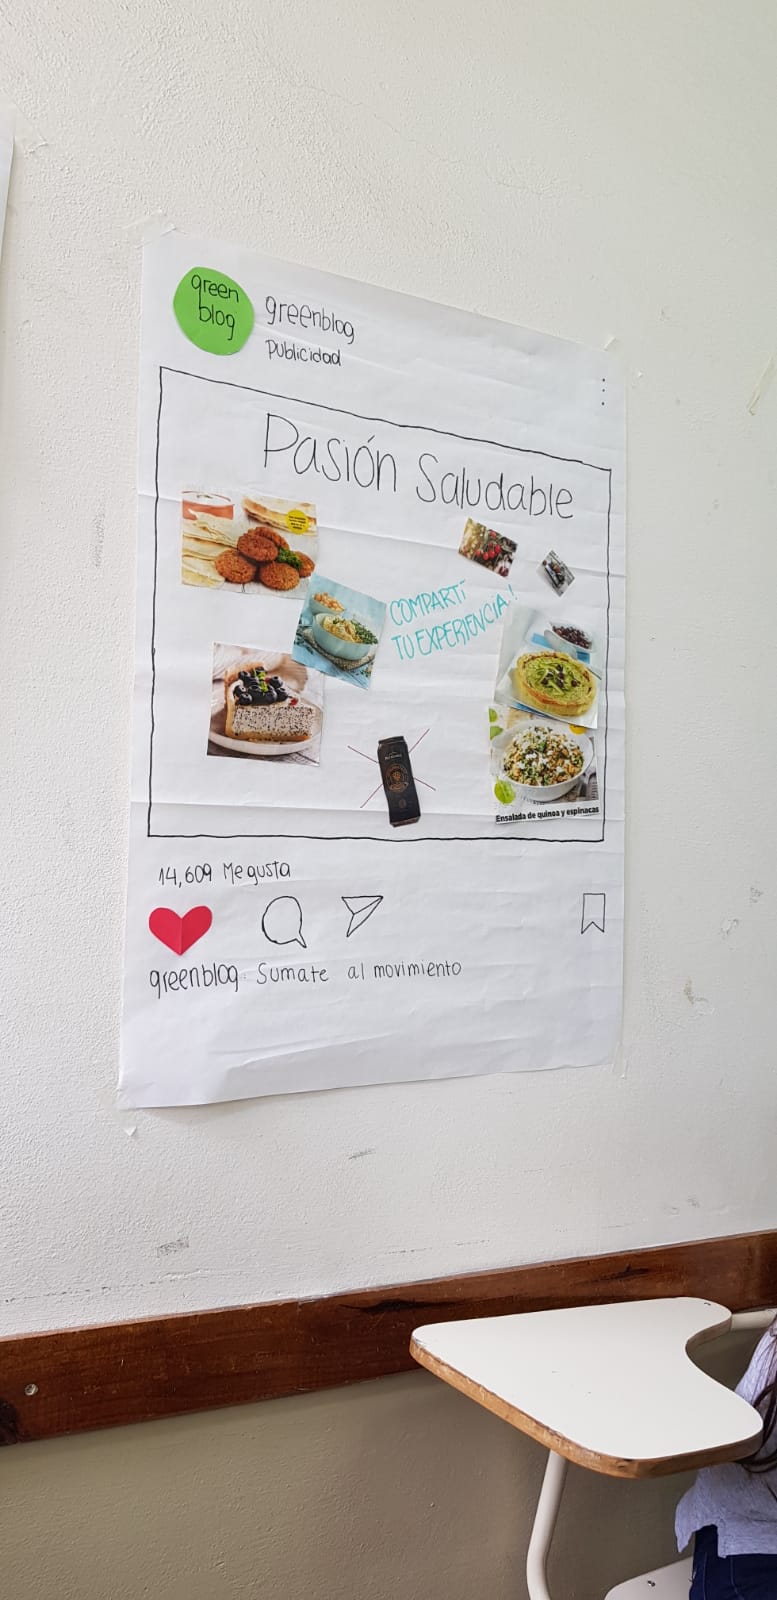 green
blog
greenblog
Publicidad
Pasión Saludable
COMPARTÍ
TU EXPERIENCIA!
Ensalada de quinoa y espinacas
14,609 Me gusta
greenblog: Sumate al movimiento